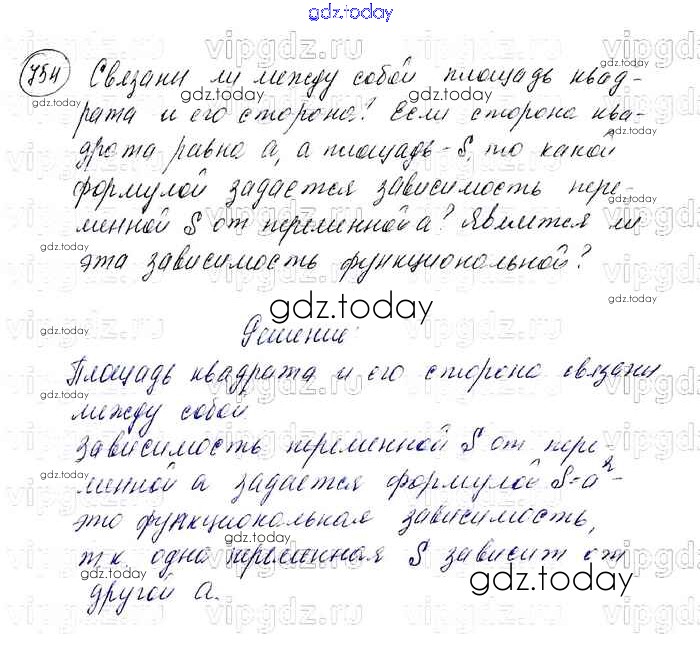 gdz.today
754 Связаны ли между собой площадь квад-
рата и его сторона? Если сторона ква-
драта равна а, а площадь - S, то какой
формулой задается зависимость пере-
менной S от переменной а? Является ли
эта зависимость функциональной?
gdz.today
Решение:
Площадь квадрата и его сторона связаны
между собой.
Зависимость переменной S от пере-
менной а задается формулой S=а²-
это функциональная зависимость,
т.к. одна переменная S зависит от
другой а.
gdz.today